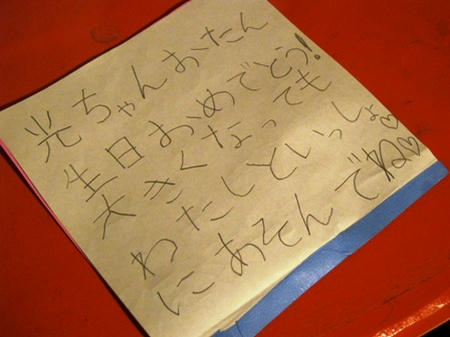 光ちゃんおたん
生日おめでとう!
大きくなっても
わたしといっしょ♡
にあそんでね♡